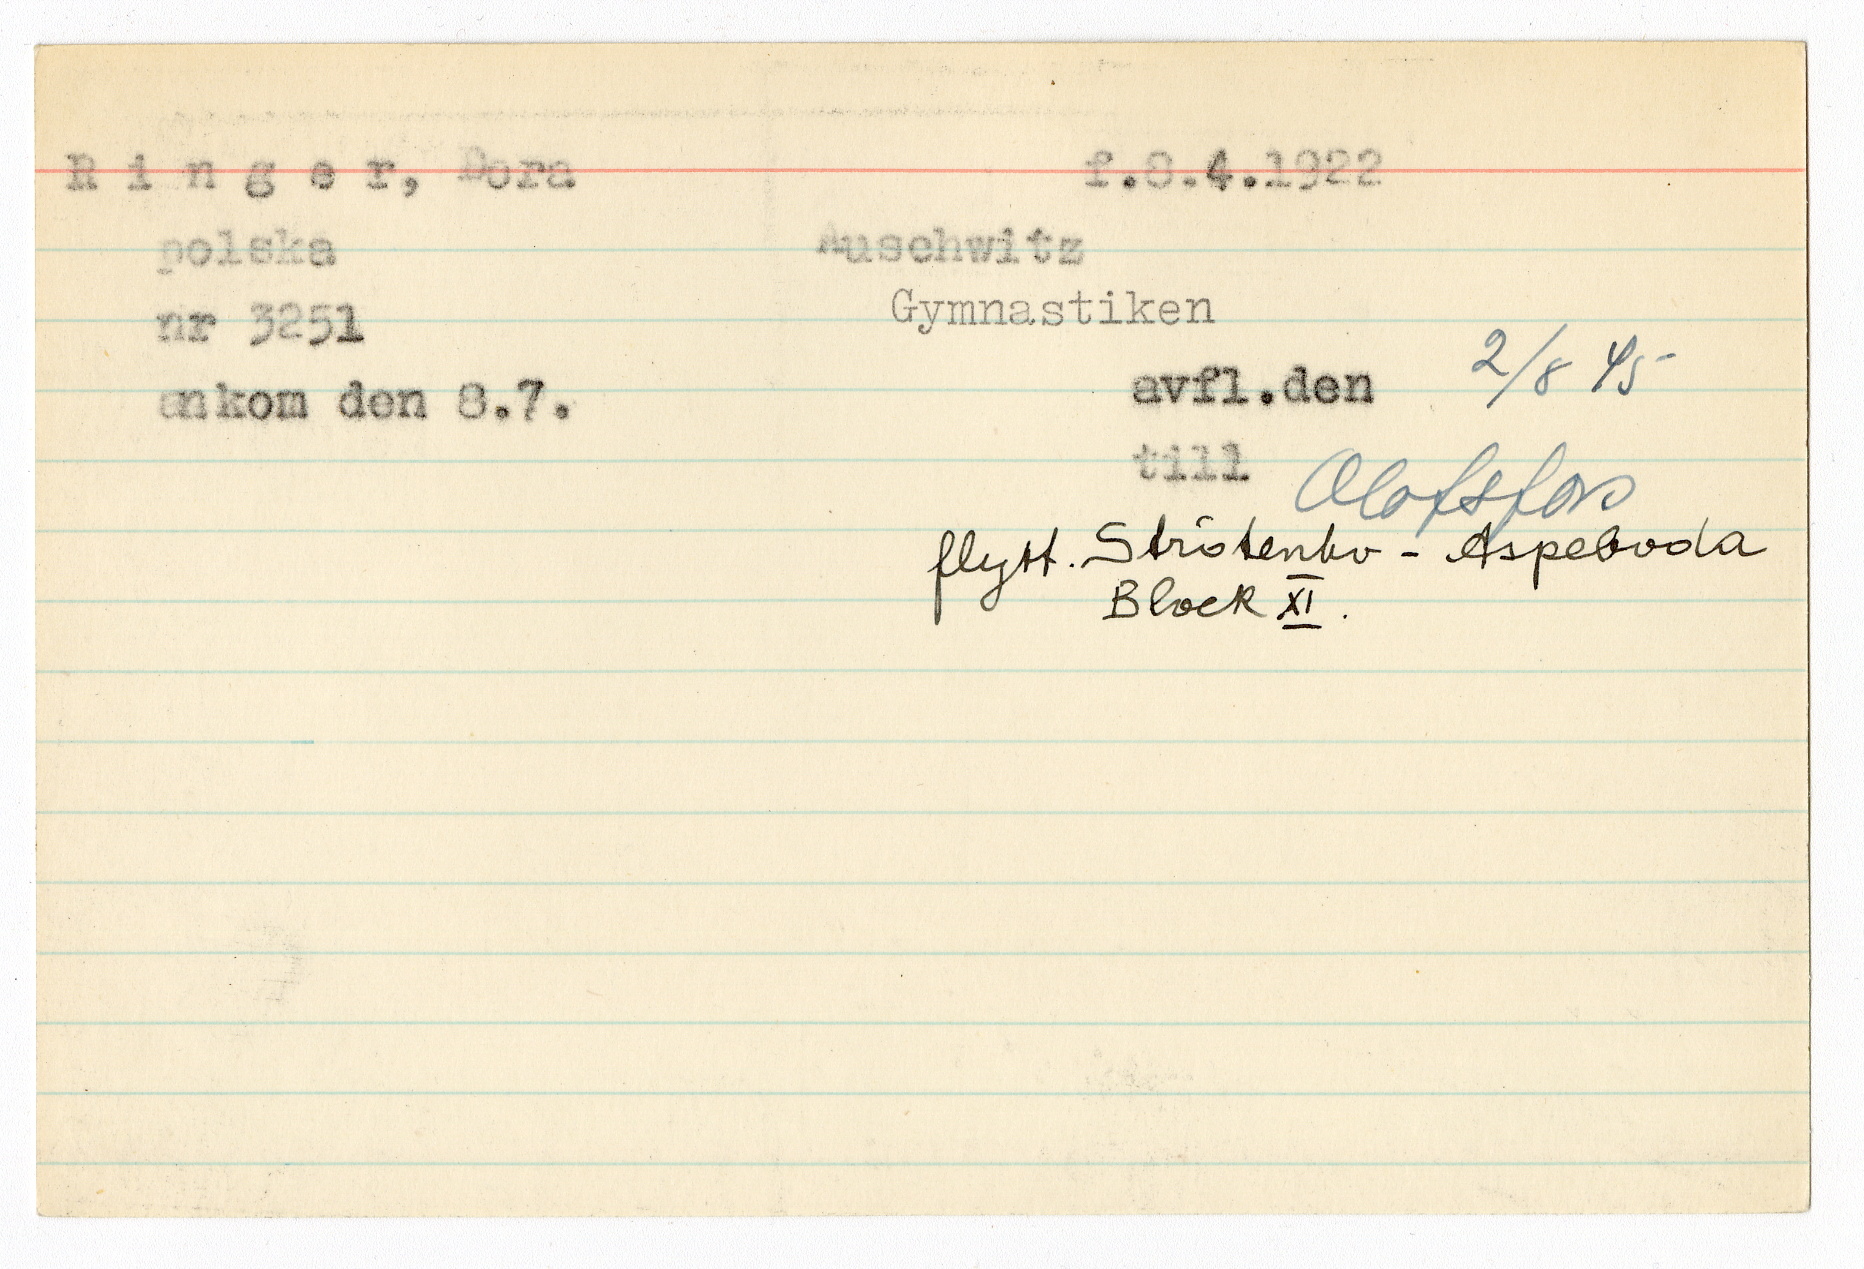 R i n g e r, Dora f.8.4.1922
polska Auschwitz
Gymnastiken
nr 3251
avfl.den 2/8 45
ankom den 8.7.
till Olofsfors
flytt. Stritenbo - Aspeboda
Block XI.